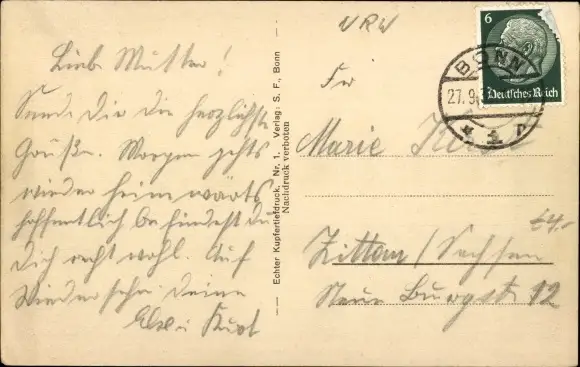 Liebe Mutter!
Sende Dir die herzlichste
Grüße. Morgen gehts
wieder heimwärts
hoffentlich befindest Du
Dich recht wohl. Auf
Wiedersehn Deine
Else u Kurt
Echter Kupfertiefdruck. Nr. 1. Verlag: S. F., Bonn
Nachdruck verboten
NRW
6
Deutsches Reich
BONN
27.9.
Fr
Marie
Zittau/Sachsen
Neue Burgstr 12